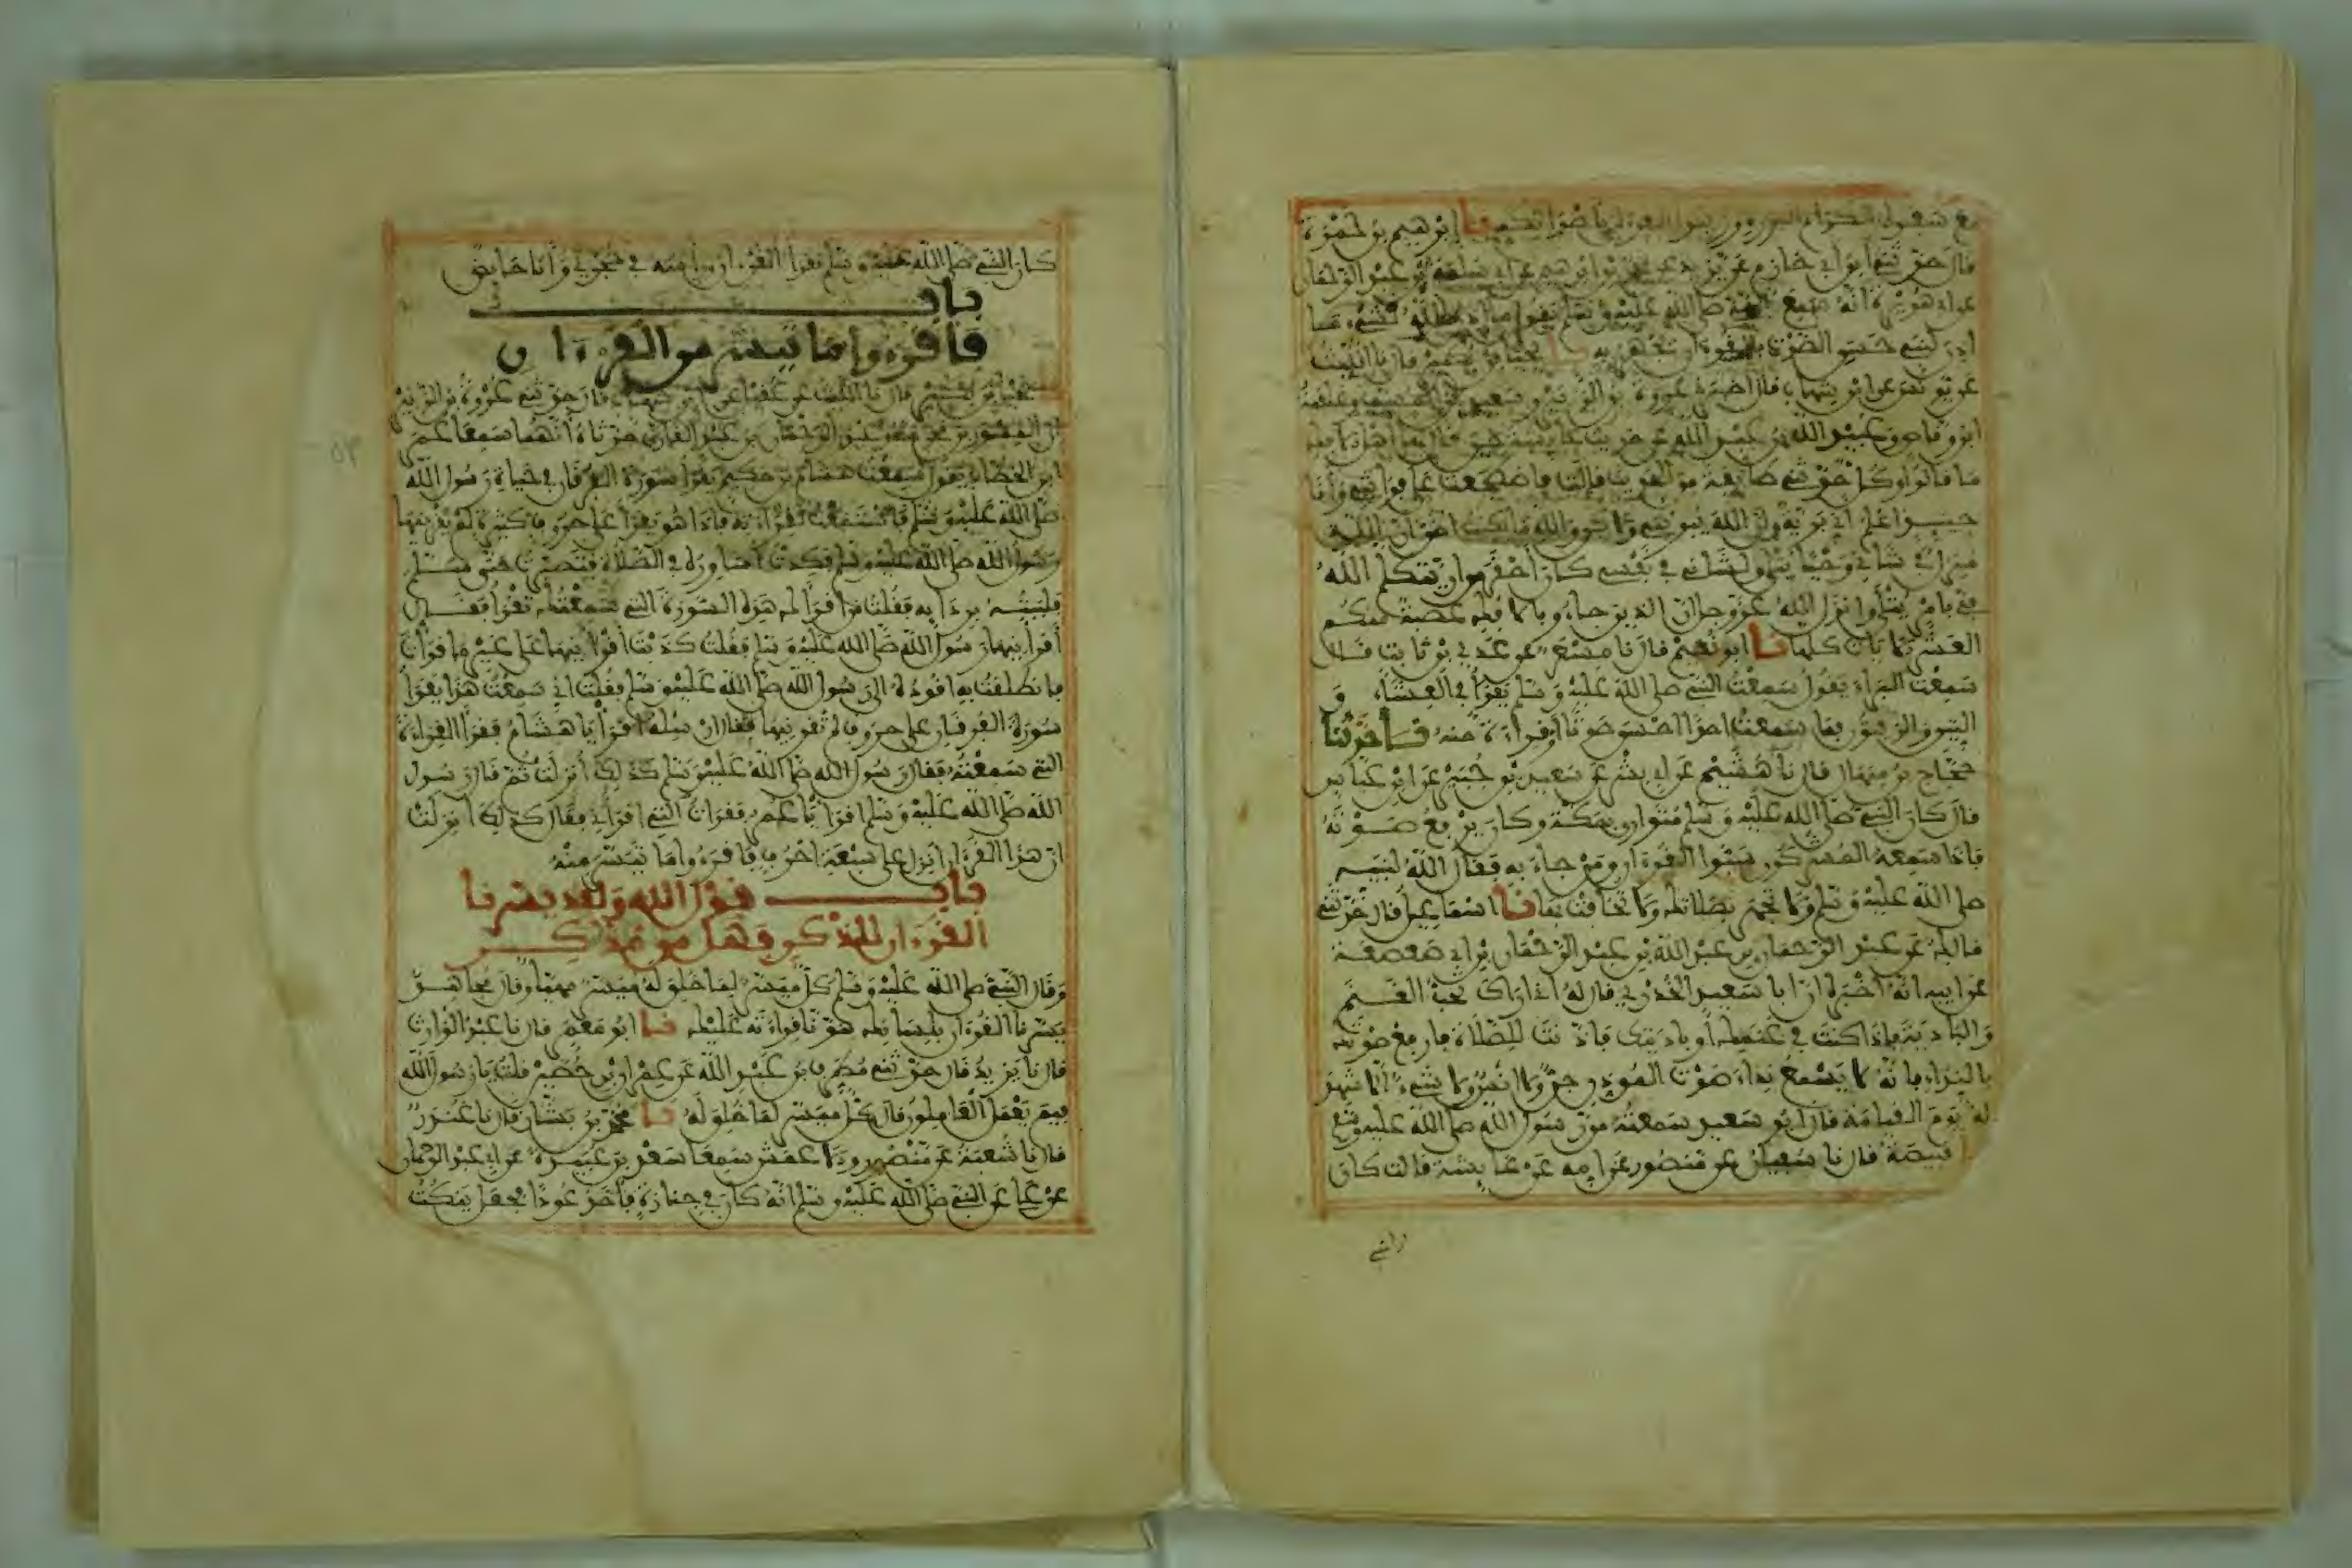 مع سفرة الكرام البررة وزينوا القرءان باصواتكم نا ابرهيم بن حمزة
قال حدثني ابن ابي حازم عن يزيد عن محمد بن ابرهيم عن ابي سلمة بن عبد الرحمان
عن ابي هريرة انه سمع النبي صلى الله عليه وسلم يقول ما اذن الله لشيء ما
اذن لنبي حسن الصوت بالقرءان يجهر به نا يحيى بن بكير قال نا الليث
عن يونس عن ابن شهاب قال اخبرني عروة بن الزبير وسعيد بن المسيب وعلقمة
ابن وقاص وعبيد الله بن عبد الله عن حديث عايشة حين قال لها اهل الافك
ما قالوا وكل حدثني طايفة من الحديث قالت فاضطجعت على فراشي وانا
حينئذ اعلم اني برية وان الله يبرئني ولاكن والله ما كنت اظن ان الله
منزل في شاني وحيا يتلى ولشاني في نفسي كان احقر من ان يتكلم الله
في بامر يتلى وانزل الله عز وجل ان الذين جاءو بالافك عصبة منكم
العشر الايات كلها نا ابو نعيم قال نا مسعر عن عدي بن ثابت قال
سمعت البراء يقول سمعت النبي صلى الله عليه وسلم يقرأ في العشاء و
التين والزيتون فما سمعت احدا احسن صوتا او قراءة منه نا حدثنا
حجاج بن منهال قال نا هشيم عن ابي بشر عن سعيد بن جبير عن ابن عباس
قال كان النبي صلى الله عليه وسلم متواريا بمكة وكان يرفع صوته
فاذا سمعه المشركون سبوا القرءان ومن جاء به فقال الله لنبيه
صلى الله عليه وسلم ولا تجهر بصلاتك ولا تخافت بها نا اسماعيل قال حدثني
مالك عن عبد الرحمان بن عبد الله بن عبد الرحمان بن ابي صعصعة
عن ابيه انه اخبره ان ابا سعيد الخدري قال له اني اراك تحب الغنم
والبادية فاذا كنت في غنمك او باديتك فاذنت للصلاة فارفع صوتك
بالنداء فانه لا يسمع نداء صوت الموذن جن ولا انس ولا شيء الا شهد
له يوم القيامة قال ابو سعيد سمعته من رسول الله صلى الله عليه وسلم
نا قبيصة قال نا سفيان عن منصور عن امه عن عايشة قالت كان
كان النبي صلى الله عليه وسلم يقرأ القرءان وراسه في حجري وانا حايض
باب
فاقرءوا ما تيسر من القرءان
نا يحيى بن بكير قال نا الليث عن عقيل عن ابن شهاب قال حدثني عروة بن الزبير
ان المسور بن مخرمة وعبد الرحمان بن عبد القاري حدثاه انهما سمعا عمر
ابن الخطاب يقول سمعت هشام بن حكيم يقرأ سورة الفرقان في حياة رسول الله
صلى الله عليه وسلم فاستمعت لقراءته فاذا هو يقرأ على حروف كثيرة لم يقرئنيها
رسول الله صلى الله عليه وسلم فكدت اساوره في الصلاة فتصبرت حتى سلم
فلببته بردايه فقلت من اقرأك هذه السورة التي سمعتك تقرأ فقال
أقرأنيها رسول الله صلى الله عليه وسلم فقلت كذبت أقرأنيها على غير ما قرأت
فانطلقت به اقوده الى رسول الله صلى الله عليه وسلم فقلت اني سمعت هذا يقرأ
سورة الفرقان على حروف لم تقرئنيها فقال ارسله اقرأ يا هشام فقرأ القراءة
التي سمعته فقال رسول الله صلى الله عليه وسلم كذلك أنزلت ثم قال رسول
الله صلى الله عليه وسلم اقرأ يا عمر فقرأت التي اقرأني فقال كذلك انزلت
ان هذا القرءان انزل على سبعة احرف فاقرءوا ما تيسر منه
باب قول الله ولقد يسرنا
القرءان للذكر فهل من مدكر
وقال النبي صلى الله عليه وسلم كل ميسر لما خلق له ميسر مهيأ وقال مجاهد
يسرنا القرءان بلسانك هونا قراءته عليك نا ابو معمر قال نا عبد الوارث
قال نا يزيد قال حدثني مطرف بن عبد الله عن عمران بن حصين قلت يا رسول الله
فيم يعمل العاملون قال كل ميسر لما خلق له نا محمد بن بشار قال نا غندر
قال نا شعبة عن منصور والاعمش سمعا سعد بن عبيدة عن ابي عبد الرحمان
عن علي عن النبي صلى الله عليه وسلم انه كان في جنازة فأخذ عودا فجعل ينكت